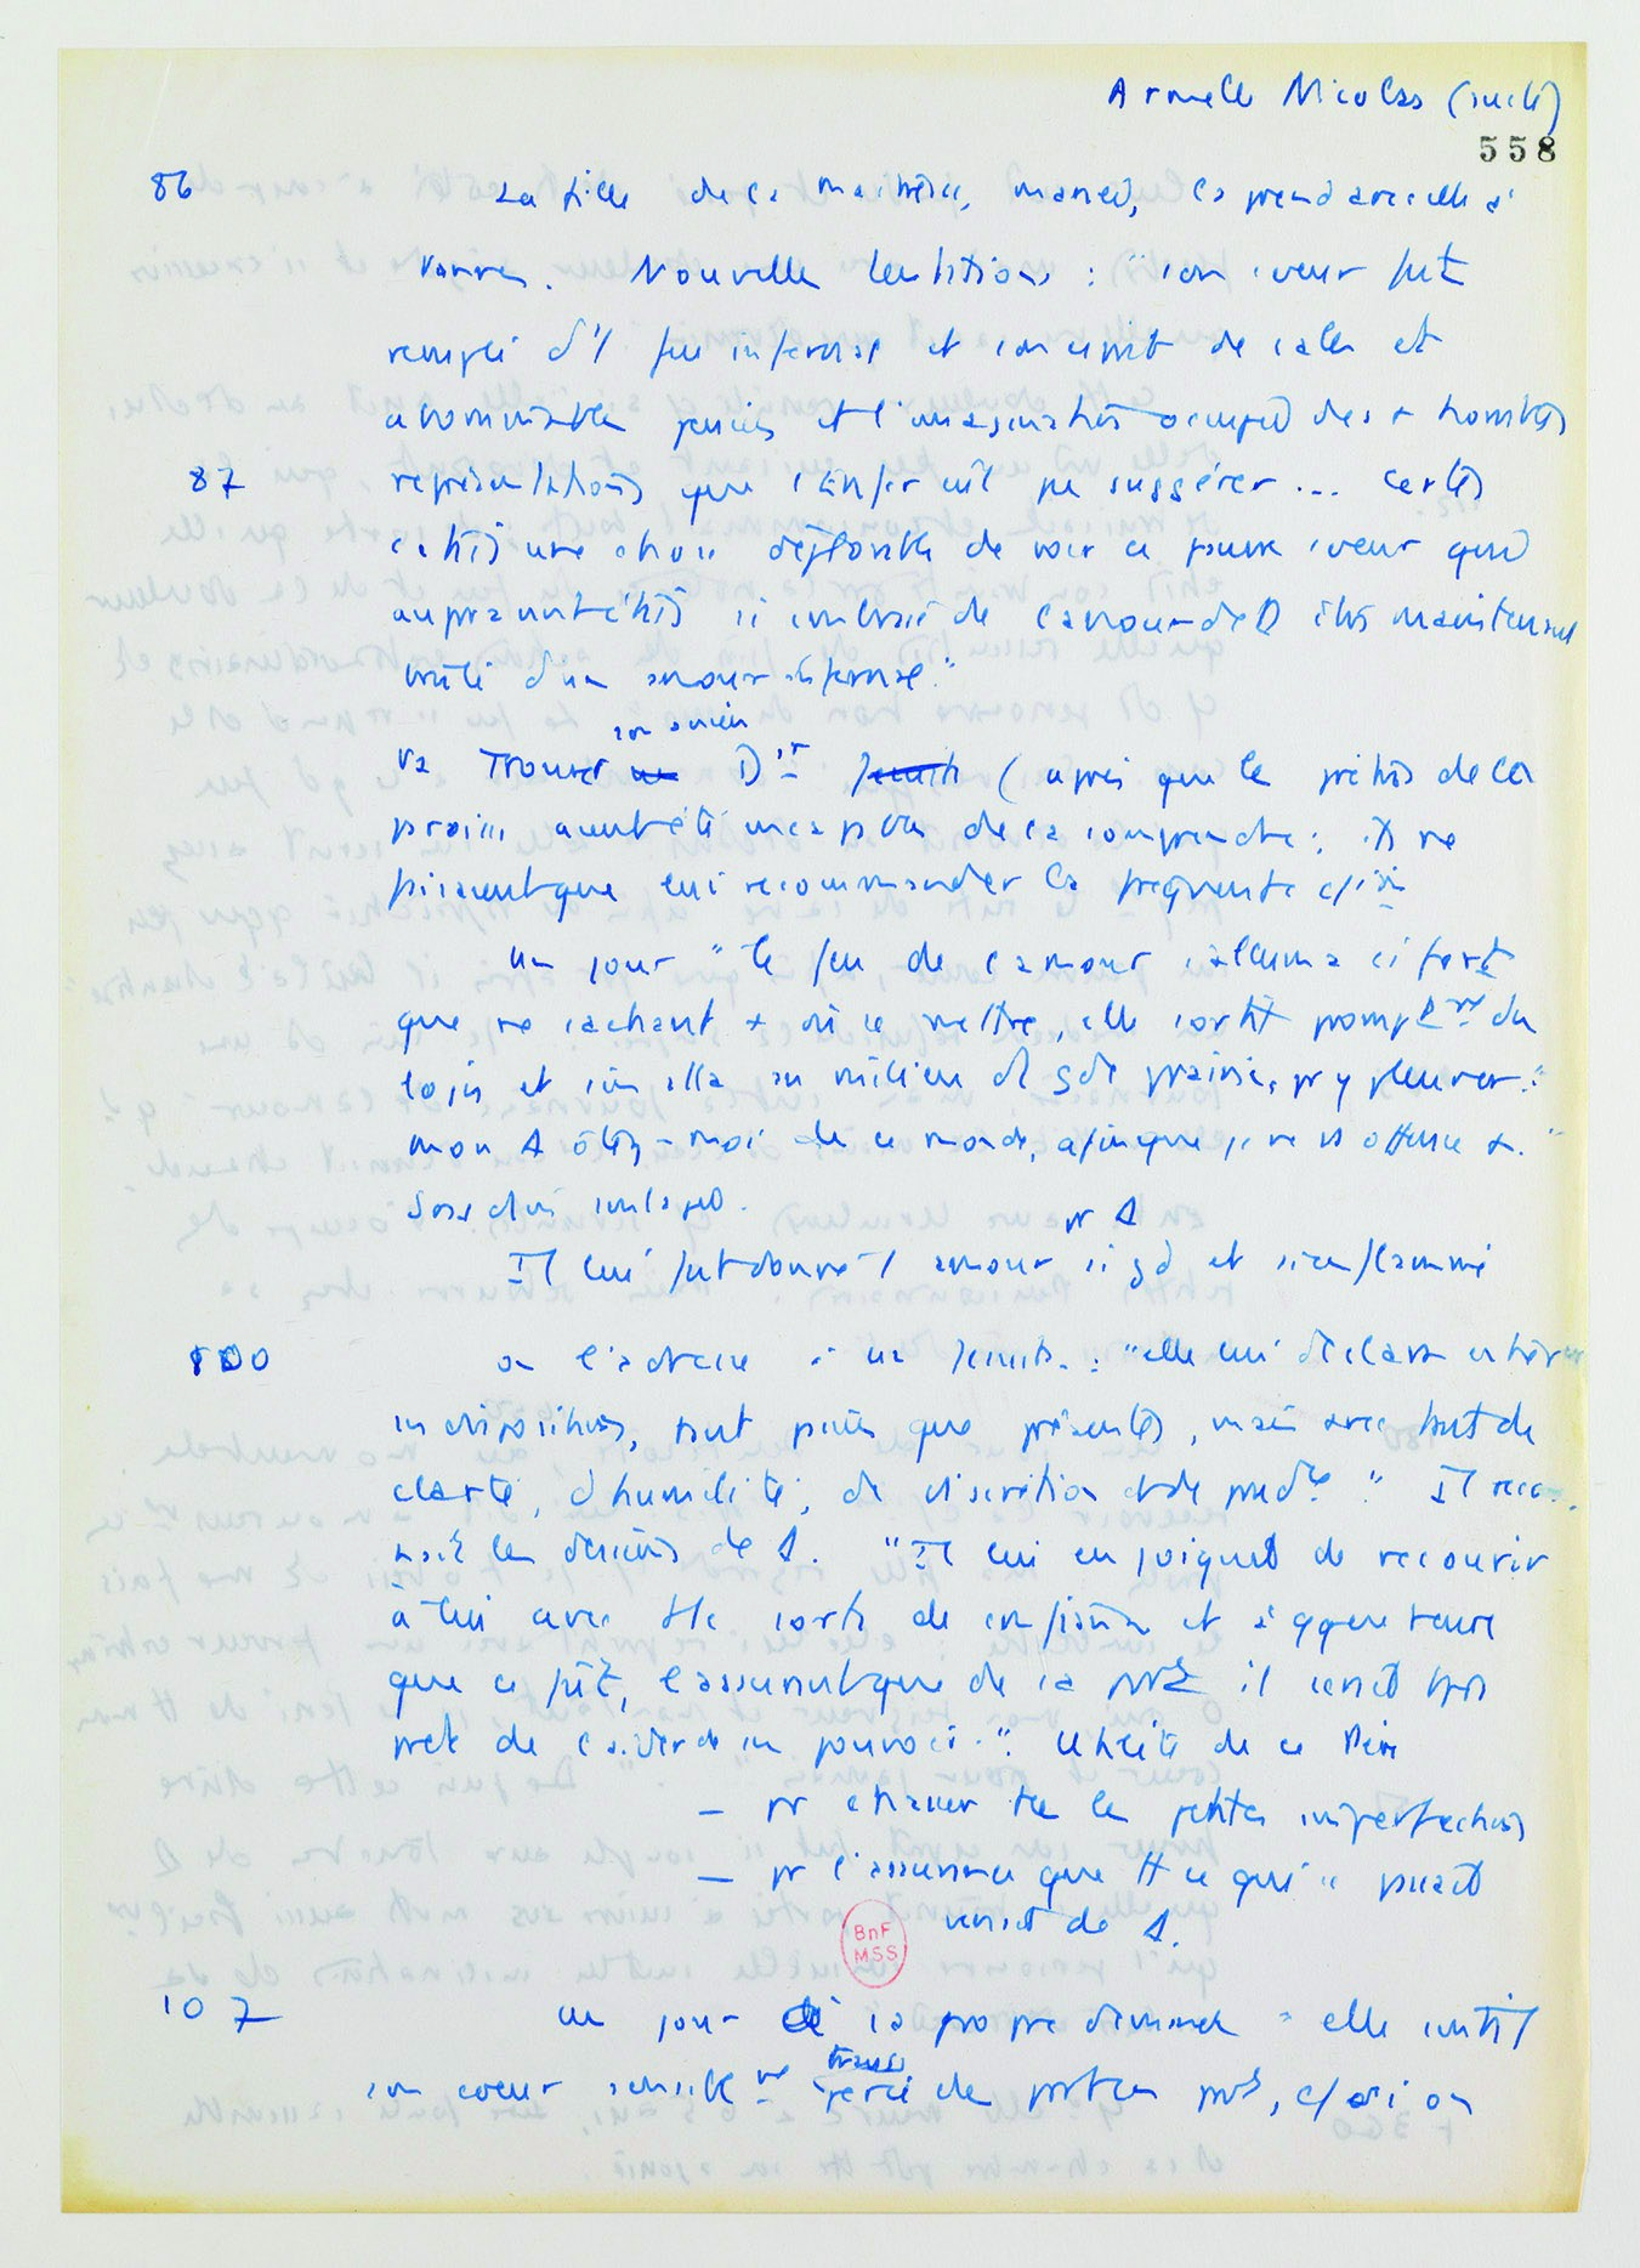 Armelle Nicolas (suite)
558
86 La fille de la maîtresse, mariée, la prend avec elle à
Vannes. Nouvelles tentations : "son coeur fut
rempli d'1 feu infernal et son esprit de sales et
abominables pensées et l'imagination occupée des + horribles
87 représentations que l'Enfer eût pu suggérer... Certes
c'était une chose déplorable de voir ce pauvre coeur qui
auparavant était si embrasé de l'amour de D être maintenant
brûlé d'un amour infernal."
son ancien
Va trouver un Dir Jésuite (après que les prêtres de la
paroisse avaient été incapables de la comprendre : ils ne
faisaient que lui recommander la fréquente c/ion
Un jour "le feu de l'amour s'alluma si fort
que ne sachant + où se mettre, elle sortit promptemt du
logis et s'en alla au milieu d'1 gde prairie, pr y pleurer."
mon D ôtez-moi de ce monde, afin que je ne vs offense +."
soulagée.
pr D
Il lui fut donné 1 amour si gd et si enflammé
100 on l'adresse à un Jésuite : "elle lui déclara entièremt
ses dispositions, tant passées que présentes, mais avec tant de
clarté, d'humilité, de discrétion et de prudce." Il recon-
naît les desseins de D. "Il lui enjoignit de recourir
à lui avec tte sorte de confiance et à qque heure
que ce fût, l'assurant que de sa part il serait tjrs
prêt de l'aider de son pouvoir." Utilité de ce Père
— pr chasser ttes les petites imperfections
— pr l'assurance que tt ce qui se passait
venait de D.
BnF
MSS
107 un jour de sa propre demande "elle sentit
son coeur sensiblemt percé de part en part,